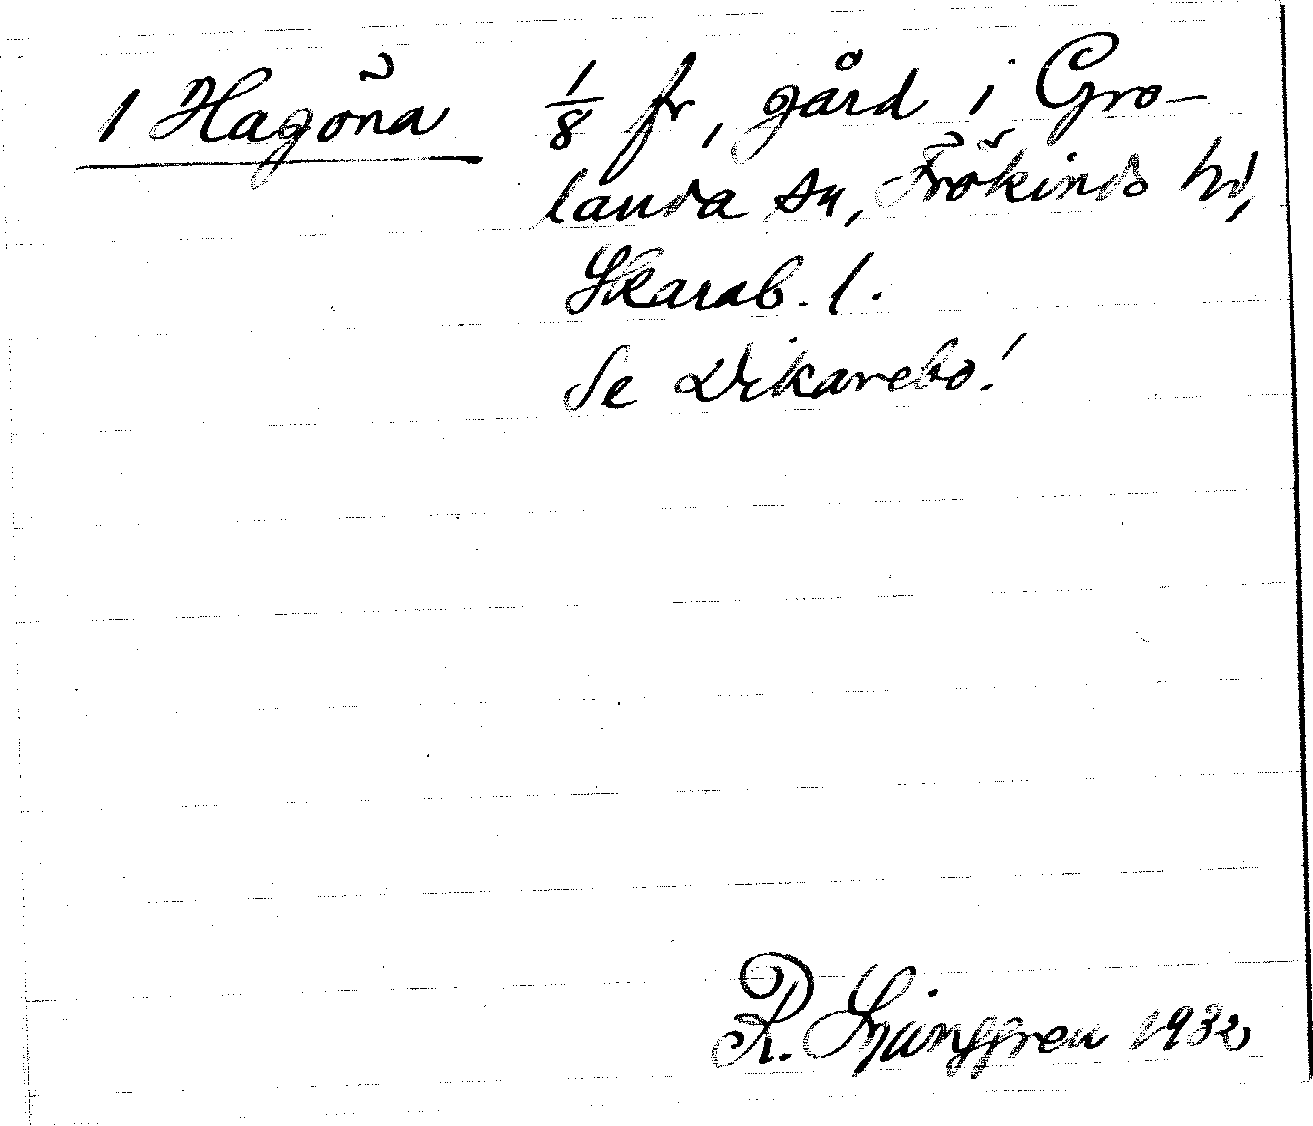 1 Hagöna 1/8 fr, gård i Gro-
landa sn, Frökinds hd,
Skarab. l.
Se Vikarebo!
R. Ljunggren 1932